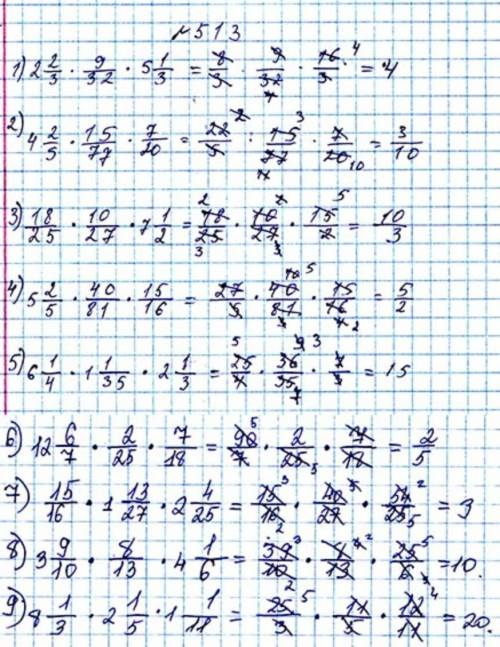 №513
1) 2 2/3 · 9/32 · 5 1/3 = 8/3 · 9/32 · 16/3 = 4
2) 4 2/5 · 15/77 · 7/20 = 22/5 : 15/77 · 7/20 = 3/10
3) 18/25 · 10/27 · 7 1/2 = 18/25 · 10/27 · 15/2 = 10/3
4) 5 2/5 · 40/81 · 15/16 = 27/5 · 40/81 · 15/16 = 5/2
5) 6 1/4 · 1 1/35 · 2 1/3 = 25/4 · 36/35 · 7/3 = 15
6) 12 6/7 · 2/25 · 7/18 = 90/7 · 2/25 · 7/18 = 2/5
7) 15/16 · 1 13/27 · 2 4/25 = 15/16 · 40/27 · 54/25 = 3
8) 3 9/10 · 8/13 · 4 1/6 = 39/10 · 8/13 · 25/6 = 10.
9) 8 1/3 · 2 1/5 · 1 1/11 = 25/3 · 11/5 · 12/11 = 20.